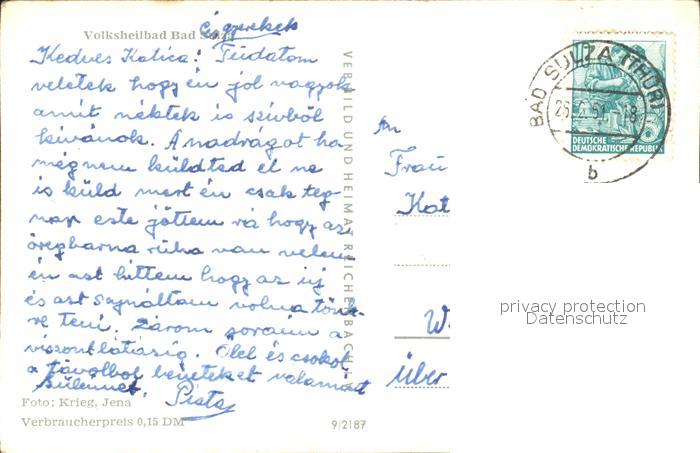 Volksheilbad Bad Sulza
és gyerekek
Kedves Katica! Tudatom
veletek hogy én jól vagyok
amit néktek is szívből
kívánok. A nadrágot ha
mégnem küldted el ne
is küld mert én csak teg
nap este jöttem rá hogy az
öregbarna ruha van velem
én azt hittem hogy az új
és azt sajnáltam volna tönk-
re teni. Zárom soraim a
viszontlátásig. Ölel és csókol
a távolból benneteket valamint
Pista
Foto: Krieg, Jena
Verbraucherpreis 0,15 DM
9/2187
VERBILD UND HEIMAT REICHENBACH I. V.
An
Frau
Kat
W
über
BAD SULZA (THÜR)
b
DEUTSCHE
DEMOKRATISCHE REPUBLIK
privacy protection
Datenschutz